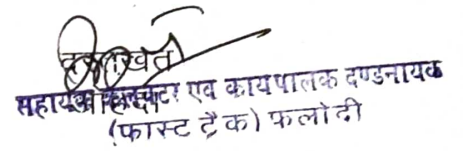 सहायक कलक्टर एव कायपालक दण्डनायक
(फास्ट ट्रैक) फलोदी